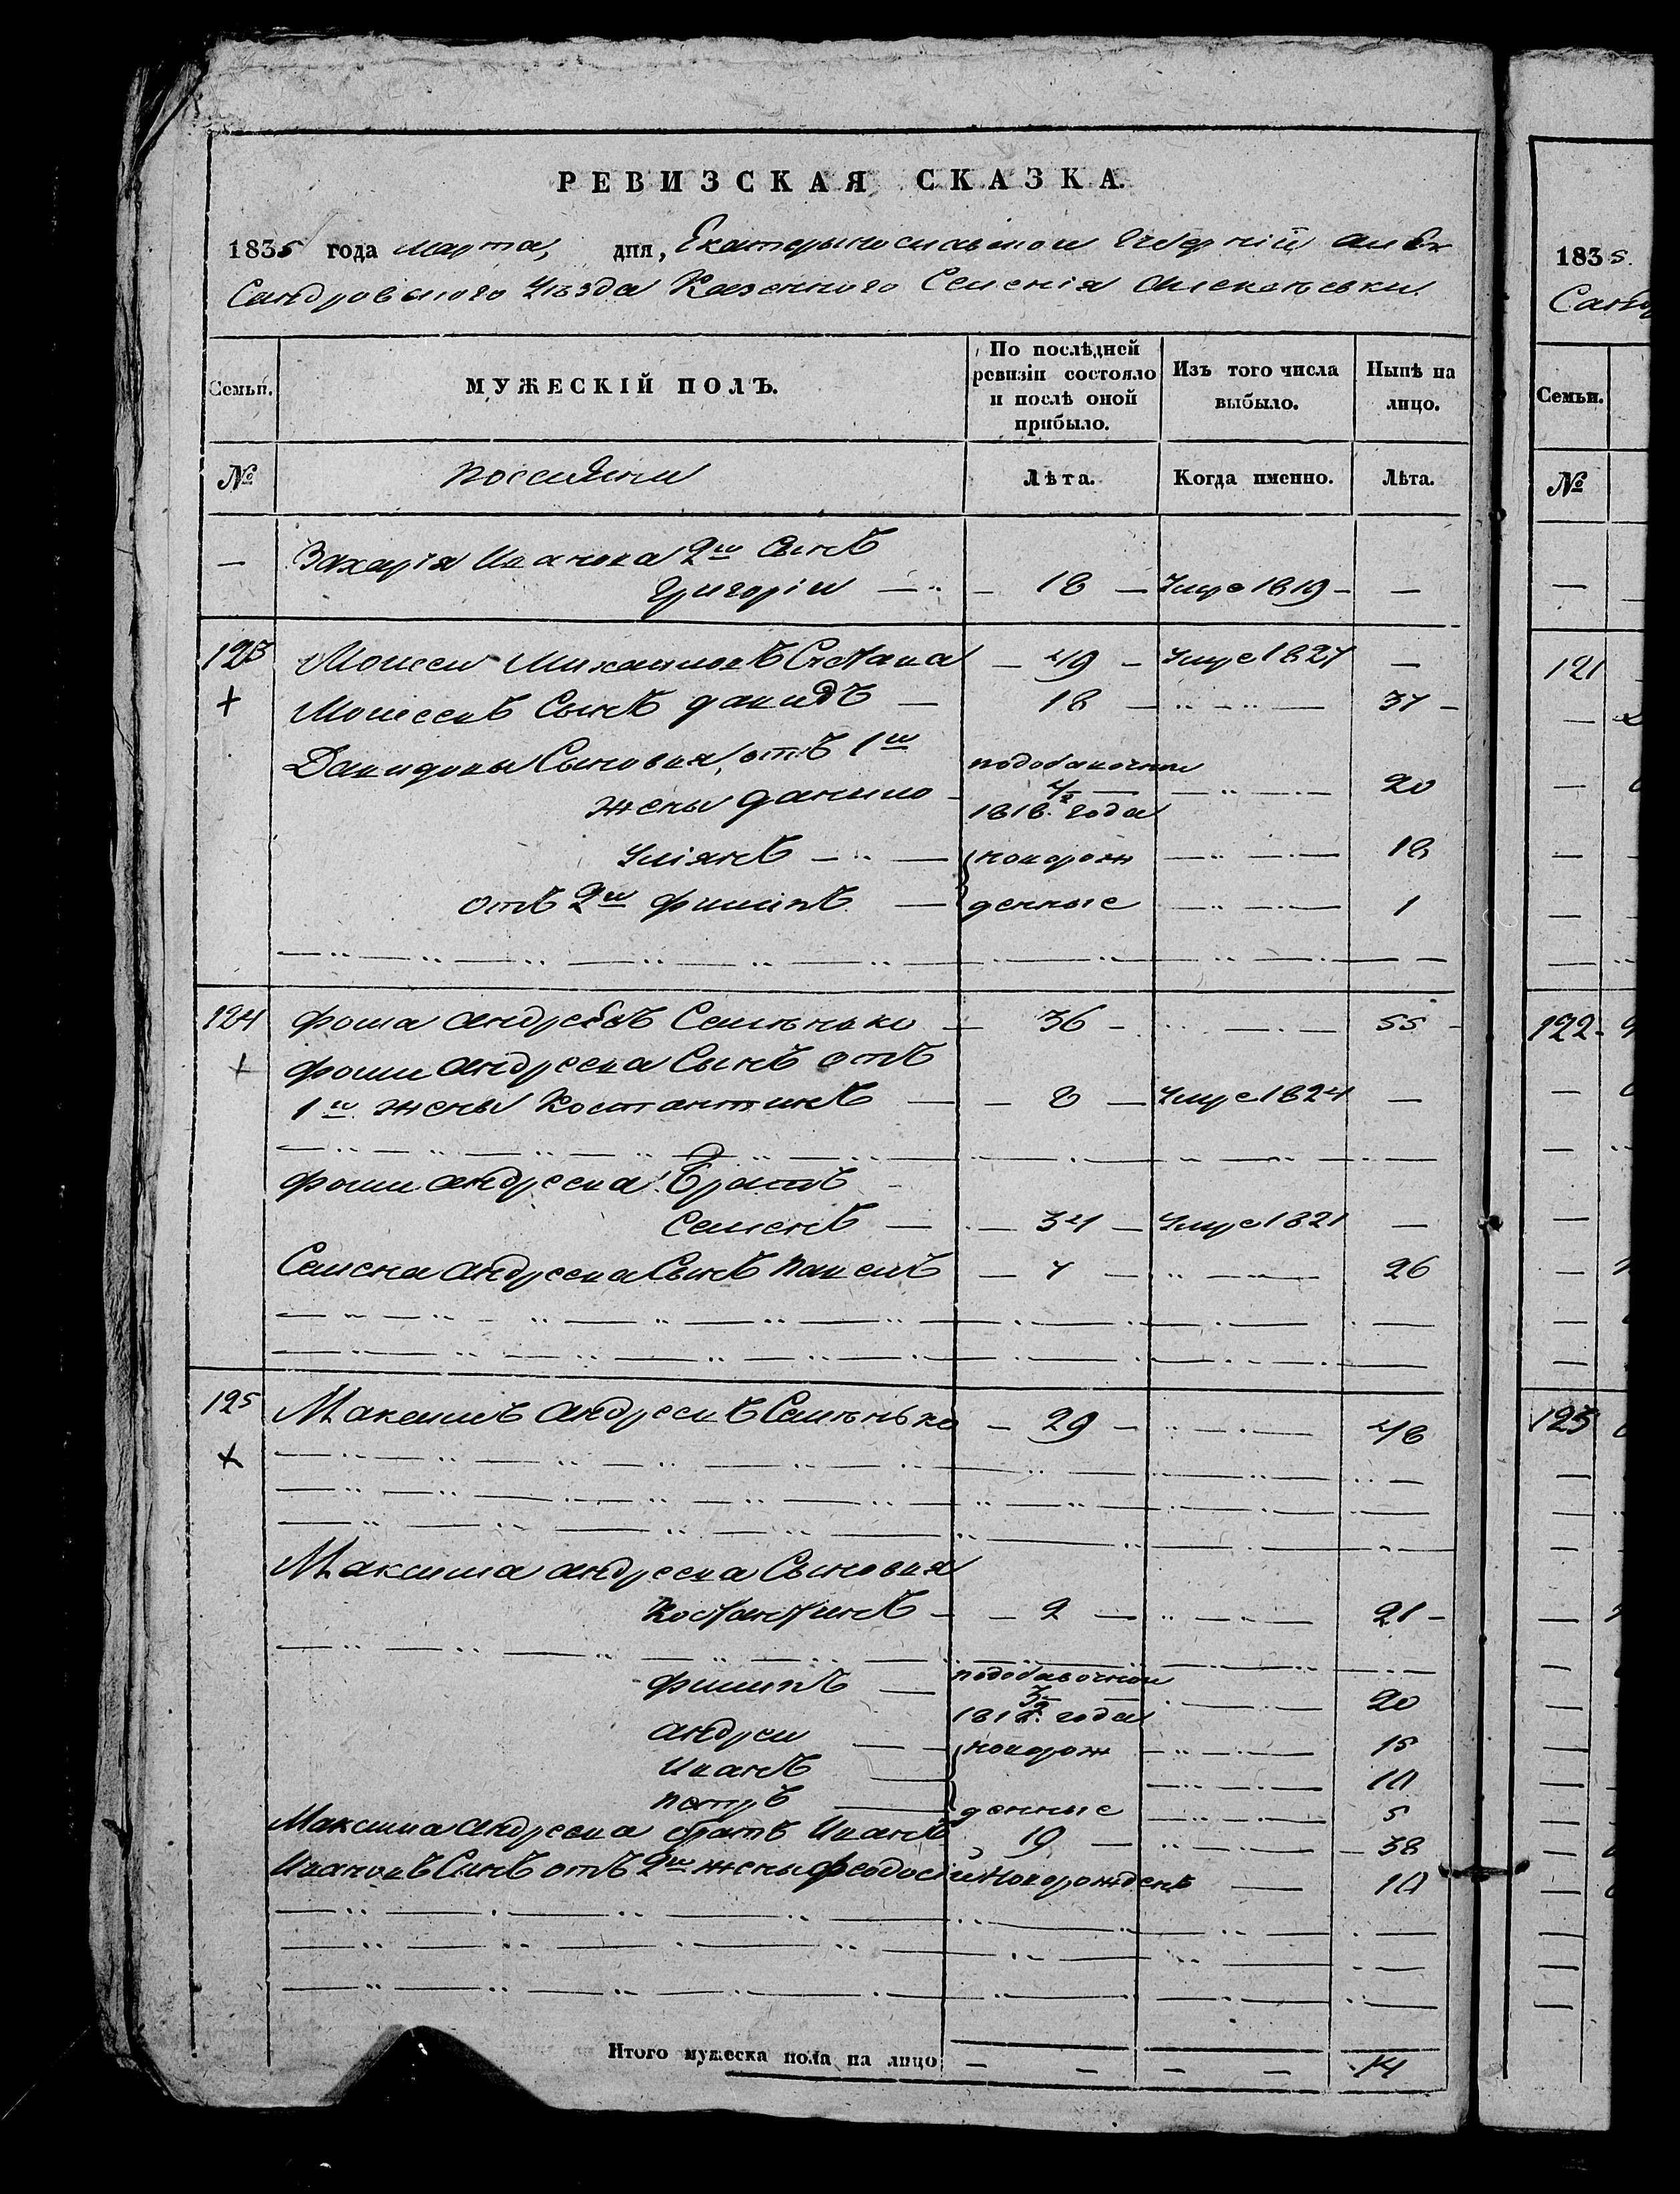 РЕВИЗСКАЯ СКАЗКА.
1835 года марта, дня, Екатериносласкои Губерніи Алек
Сандровского Уѣзда Казенного Селенія
Семьи. МУЖЕСКІЙ ПОЛЪ. По послѣдней ревизіи состояло и послѣ оной прибыло. Изъ того числа выбыло. Нынѣ на лицо.
№ Поселяни Лѣта. Когда именно. Лѣта.
— Захарія Иванова 2й Сынъ
Григоріи — 18 — Умре 1819 — —
123 Моисеи Михаиловъ Сметана — 49 — Умре 1827 —
Моисеевъ Сынъ Давидъ — 18 — 37 —
Давидовы Сыновья, отъ 1й
жены Данило подобавочнои 4/2 1818. года 20
Уліянъ — новорож 18
отъ 2й Филипъ — денные 1
124 Фома Андреевъ Семѣнько — 36 — 55 —
Фоми Андреева Сынъ отъ
1й жены Костантинъ — 8 — Умре 1824 —
Фоми Андреева Братъ
Семенъ — 34 — Умре 1821 —
Семена Андреева Сынъ Павелъ — 7 — 26
125 Максимъ Андреевъ Семѣнько — 29 — 48
Максима Андреева Сыновья
Костантинъ — 2 — 21 —
Филипъ — подобавочнои 3/2 1818. года 20
Андреи — новорож 15
Иванъ — 10
Петръ — денные 5
Максима Андреева братъ Иванъ 19 — 38
Ивановъ Синъ отъ 2й жены Феодосіи Новорожденъ — 10
Итого мужеска пола на лицо — — — — 14
1835.
Семьи.
№
121
122
123